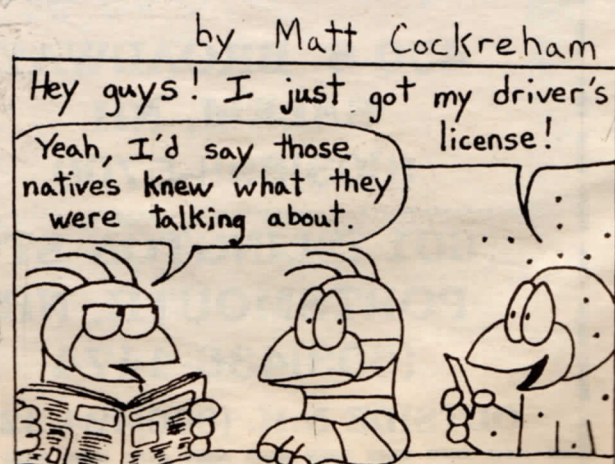 by Matt Cockreham
Hey guys! I just got my driver's
license!
Yeah, I'd say those
natives knew what they
were talking about.